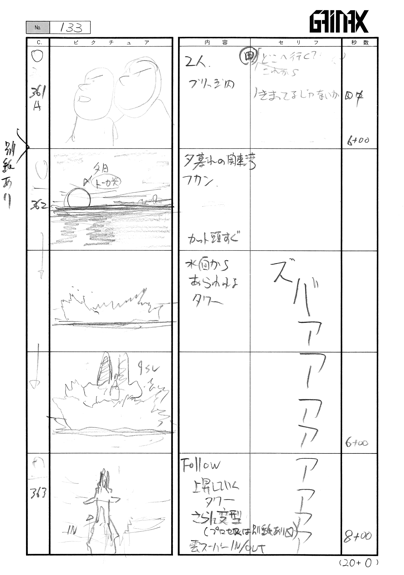 GAINAX
№ 133
C ピクチュア 内容 セリフ 秒数
361A
2人
ブリッジ内
どこへ行く?
これから
きまってるじゃないか
6+00
別紙あり
362
夕月
夕暮れの関東湾
フカン
カット頭すぐ
水面から
あらわれる
タワー
ズバァァァァ
6+00
363
IN
Follow
上昇していく
タワー
さらに変型
(プロセスは別紙あり)
雲スーパー IN/OUT
アアアア
8+00
(20+0)